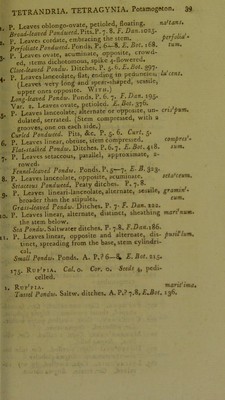 TETRANDRIA. TETRAGYNIA. Potamogeton. 39
P. Leaves oblong-ovate, petioled, floating, na'tans.
Broad-leaved Pondweed. Pits. P. 7. 8. F. Dan. 1025.
P. Leaves cordate, embracing the stem, perfolia'-
Perfoliate Pondwd. Ponds. P. 6—8. E. Bot. 168. tum.
P. Leaves ovate, acuminate, opposite, crowd-
ed, stems dichotomous, spike 4-flowered.
Close-leaved Pondw. Ditches. P. 5. 6. E. Bot. 397.
4. P. Leaves lanceolate, flat, ending in peduncles, lu'cens.
(Leaves very long and spear-shaped, sessile,
upper ones opposite. WITH.)
Long-leaved Pondw. Ponds. P. 6. 7. F. Dan. 195.
Var. 2. Leaves ovate, petioled. E. Bot. 376.
5. P. Leaves lanceolate, alternate or opposite, un- cris'pum.
dulated, serrated. (Stem compressed, with a
grooves, one on each side.)
Curled Pondwd. Pits, &c. P. 5. 6. Curt. 5.
6. P. Leaves linear, obtuse, stem compressed. compres'-
Flat-stalked Pondw. Ditches. P. 6. 7. E. Bot. 418. sum.
7. P. Leaves setaceous, parallel, approximate, 2-
rowed.
Fennel-leaved Pondw. Ponds. P. 5—7. E. B. 323.
8. P. Leaves lanceolate, opposite, acuminate. seta'ceum.
Setaceous Pondweed. Peaty ditches. P. 7. 8.
9. P. Leaves lineari-lanceolate, alternate, sessile, gramin'e-
broader than the stipules. um.
Grass-leaved Pondw. Ditches. P. 7 F. Dan. 222.
10. P. Leaves linear, alternate, distinct, sheathing mari'num.
the stem below.
Sea Pondw. Saltwater ditches. P. 7. 8. F. Dan. 186.
11. P. Leaves linear, opposite and alternate, dis- pusil'lum.
tinct, spreading from the base, stem cylindri-
cal.
Small Pondw. Ponds. A. P.? 6—8. E. Bot. 215.
175. RUP'PIA. Cal. 0. Cor. 0. Seeds 4, pedi-
celled.
1. RUP'PIA. marit'ima.
Tassel Pondw. Saltw. ditches. A. P.? 7. 8. E. Bot. 136.